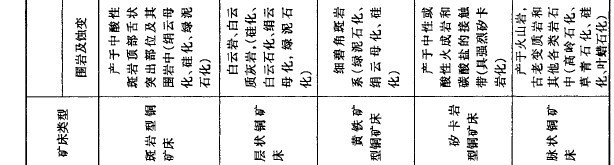 围岩及蚀变
产于中酸性
斑岩顶部舌状
突出部位及其
围岩中(绢云母
化、硅化、绿泥
石化)
白云岩,白云
质灰岩,(硅化、
白云石化、绢云
母化,绿泥石
化)
细碧角斑岩
系(绿泥石化、
绢云母化、硅
化)
产于中性或
酸性火成岩和
碳酸盐的接触
带(具强烈矽卡
岩化)
产于火山岩,
古老变质岩和
其他各类岩石
中(高岭石化、
草青石化、硅
化,叶蜡石化)
矿床类型
斑岩型铜
矿床
层状铜矿
床
黄铁矿
型铜矿床
矽卡岩
型铜矿床
脉状铜矿
床